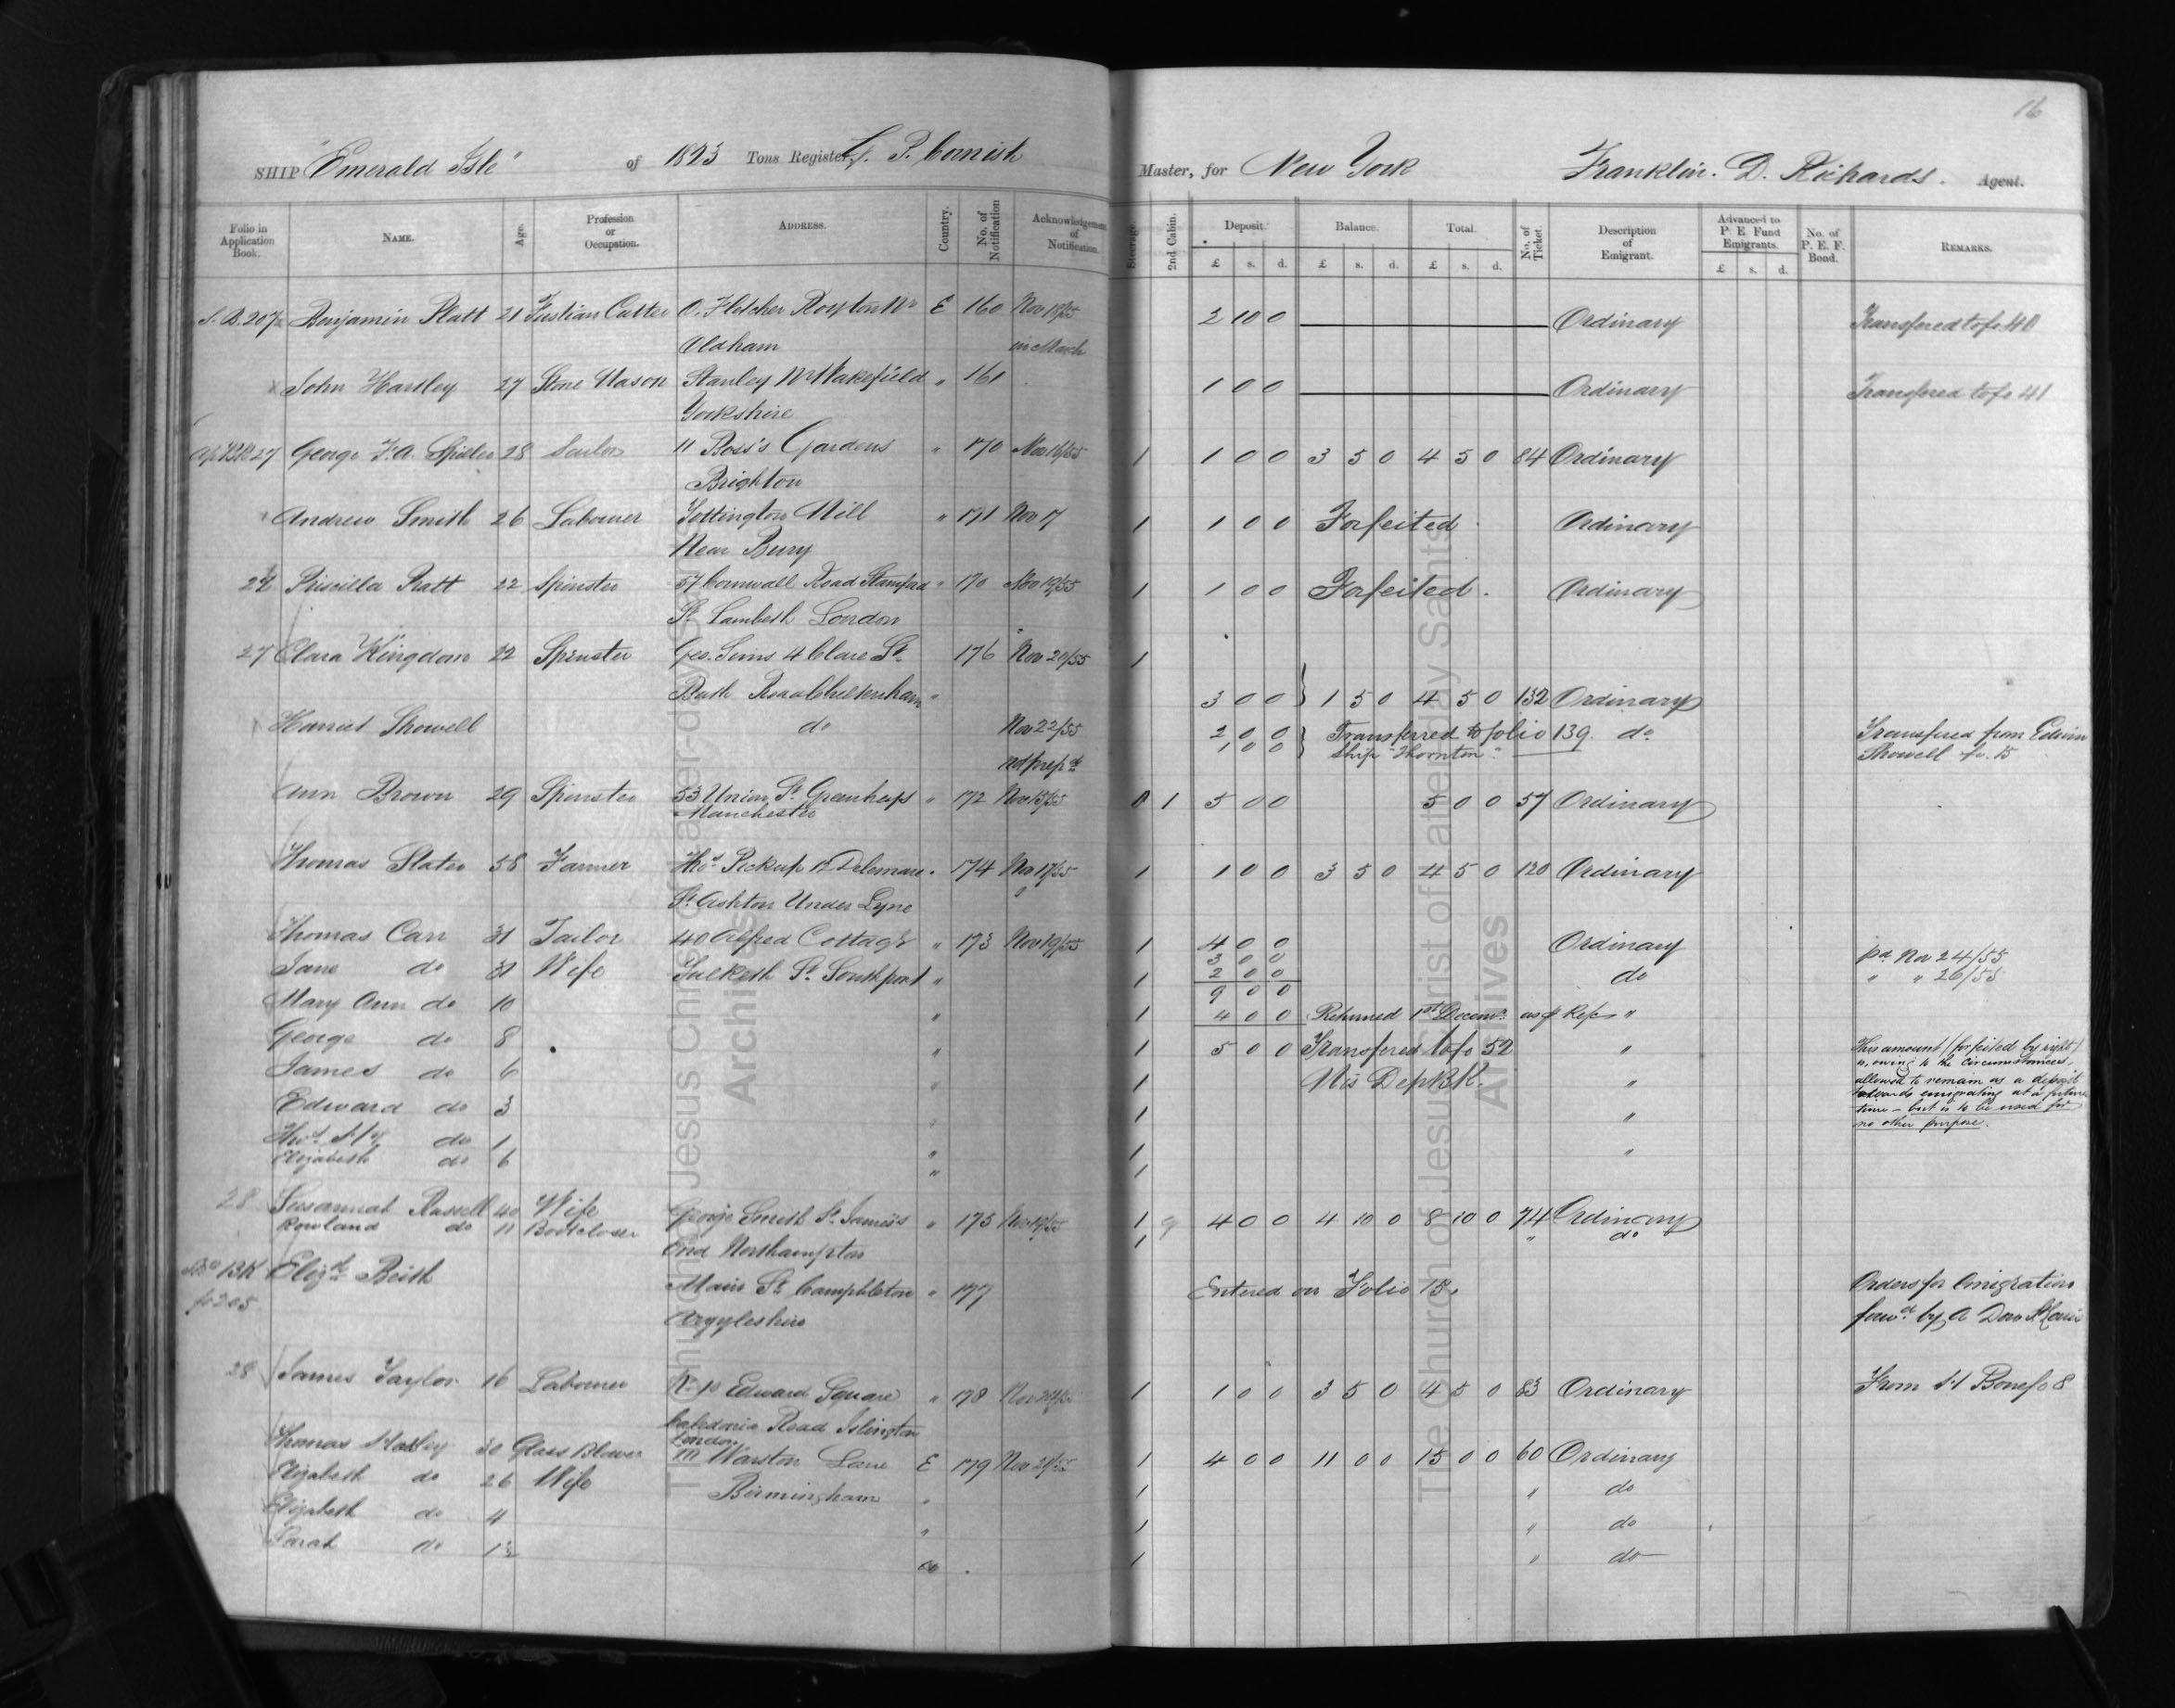 16
SHIP "Emerald Isle" of 1893 Tons Register, P. Cornish Master, for New York Franklin. D. Richards. Agent.
Folio in Application Book. NAME. Age. Profession or Occupation. ADDRESS. Country. No. of Notification Acknowledgement of Notification. Steerage. 2nd Cabin. Deposit. £ s. d. Balance. £ s. d. Total. £ s. d. No. of Ticket. Description of Emigrant. Advanced to P. E Fund Emigrants. £ s. d. No. of P. E. F. Bond. REMARKS.
Benjamin Platt 21 Fustian Cutter O. Fletcher Royton Nr E 160 Nov 2 10 0 Ordinary Transfered to fo 40
Oldham in March
John Hartley 27 Stone Mason Stanley Nr Wakefield " 161 1 0 0 Ordinary Transfered to fo 41
Yorkshire
27 George F. A. 28 11 Boss's Gardens " 170 Nov 16/55 1 1 0 0 3 5 0 4 5 0 84 Ordinary
Brighton
Andrew Smith 26 Labourer Tottington Mill " 171 Nov 17 1 1 0 0 Forfeited. Ordinary
Near Bury
Priscilla Platt 22 Spinster 57 Cornwall Road Stamford " 170 Nov 19/55 1 1 0 0 Forfeited. Ordinary
St. Lambeth London
27 Clara Kingdom 22 Spinster Geo. Sims 4 Clare St. 176 Nov 20/55 1
Bath Road Cheltenham " 3 0 0 1 5 0 4 5 0 132 Ordinary
Harriet Showell do Nov 22/55 2 0 0 Transferred to folio 139 do Transfered from Edwin
1 0 0 Ship "Thornton" Showell fo. 15
Ann Brown 29 Spinster 53 Union St. Greenheys " 172 Nov 15/55 0 1 5 0 0 5 0 0 57 Ordinary
Manchester
Thomas Slater 58 Farmer Thos Pickup 174 Nov 17/55 1 1 0 0 3 5 0 4 5 0 120 Ordinary
St. Ashton Under Lyne
Thomas Carr 31 Tailor 40 Alfred Cottage " 173 Nov 19/55 1 4 0 0 Ordinary pd Nov 24/55
3 0 0
Jane do 31 Wife St. Southport " 1 2 0 0 do " " 26/55
9 0 0
Mary Ann do 10 " 1 4 0 0 Returned 1st Decem. as p Rep "
George do 8 " 1 5 0 0 Transfered to fo 52 " This amount (forfeited by right)
is, owing to the circumstances,
James do 6 " 1 Mis Dep BK. " allowed to remain as a deposit
towards emigrating at a future
Edward do 3 " 1 " time - but is to be used for
no other purpose.
Thos Hy do 1 " 1 "
Elizabeth do 6 " 1
28 Susannah Russell 40 Wife George Smith St. James's " 175 Nov 19/55 1 4 0 0 4 10 0 8 10 0 74 Ordinary
Rowland do 11 Bootcloser End Northampton 1 " do
Elizth Beith Main St. Campbleton " 177 Entered on Folio 15. Orders for Emigration
fo 205 Argyleshire
28 James Taylor 16 Labourer No 10 Edward Square " 178 1 1 0 0 3 5 0 4 5 0 83 Ordinary From
Caledonia Road Islington
London
Thomas 30 Glass Blower Warston Lane E 179 Nov 21/55 1 4 0 0 11 0 0 15 0 0 60 Ordinary
Elizabeth do 26 Wife Birmingham " 1 " do
Elizabeth do 4 " 1 " do
Sarah do 1 1 " do
The Church of Jesus Christ of Latter-day Saints
Archives
The Church of Jesus Christ of Latter-day Saints
Archives